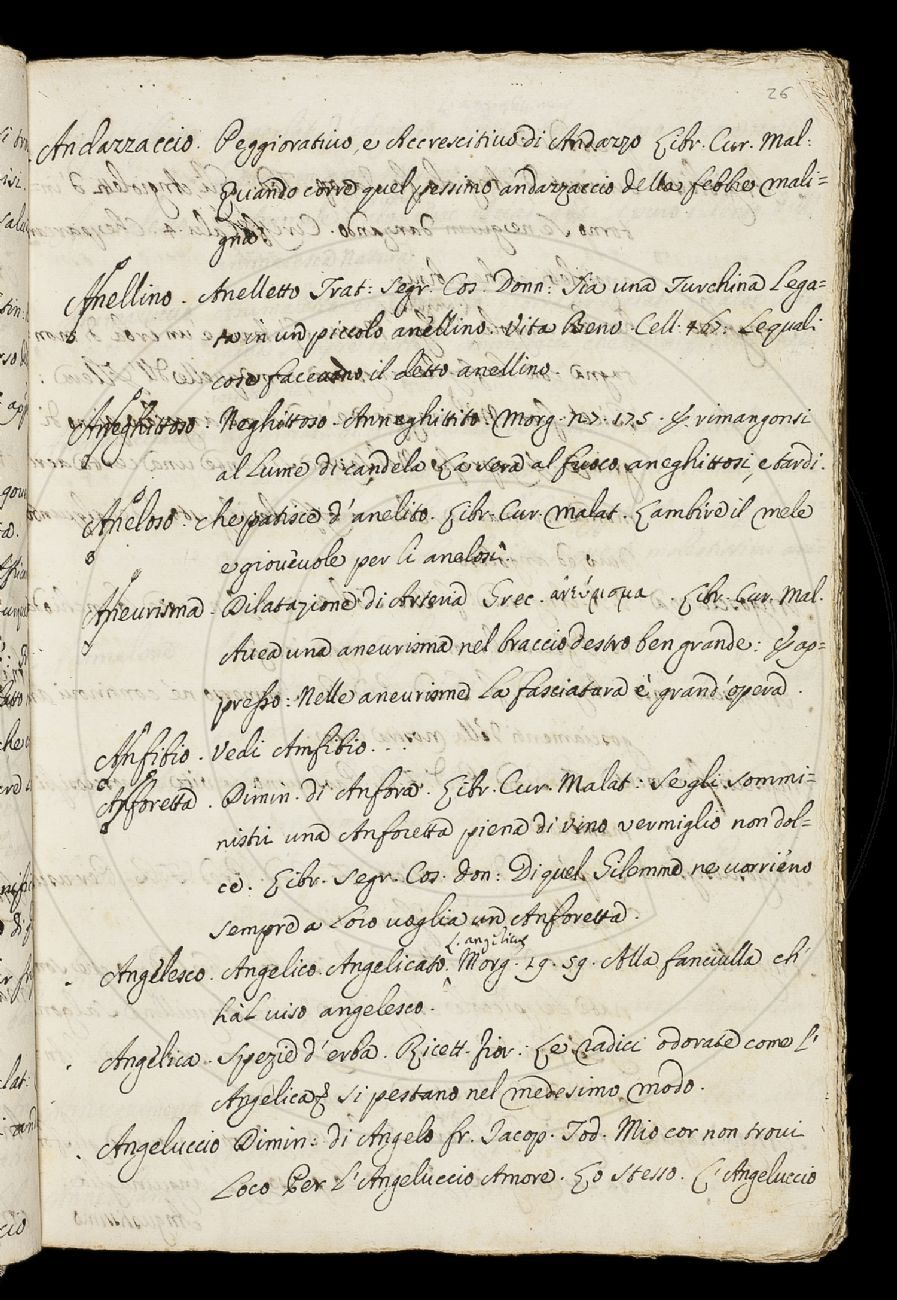 26
Andazzaccio. Peggiorativo, e Accrescitivo di Andazzo Libr. Cur. Mal:
Quando corre quel pessimo andazzaccio della febbre mali=
gna
Anellino. Anelletto Trat: Segr. Cos. Donn: Sia una Turchina Lega=
ta in un piccolo anellino. Vita Benv. Cell. 467. Lequali
cose faccano il detto anellino.
Aneghittoso. Neghittoso. Anneghittito. Morg. 27. 175. rimangonsi
al Lume di candela La sera al fuoco aneghittosi, e tardi.
Aneloso. che patisce d'anelito. Libr. Cur. malat. Lambire il mele
e giovevole per li anelosi.
Aneurisma. Dilatazione di Arteria Grec. . Libr. Cur. Mal.
Avea una aneurisma nel braccio destro ben grande: ap=
presso: Nelle aneurisme La fasciatura è grand'opera.
Anfibio. Vedi Amfibio.
Anforetta. Dimin. di Anfora. Libr. Cur. Malat: se gli sommi=
nistri una Anforetta piena di vino vermiglio non dol=
ce. Libr. Segr. Cos. don: Di quel Gilemme ne vorriéno
sempre a Loro voglia un Anforetta.
L. angelicus
Angelesco. Angelico. Angelicato. Morg. 19. 59. Alla fanciulla ch'
ha'l viso angelesco.
Angelica. Spezie d'erba. Ricett. fior: Le radici odorate come l'
Angelica si pestano nel medesimo modo.
Angeluccio Dimin: di Angelo fr. Jacop. Tod. Mio cor non trovi
Loco Per L'Angeluccio Amore. Lo stesso. L'Angeluccio